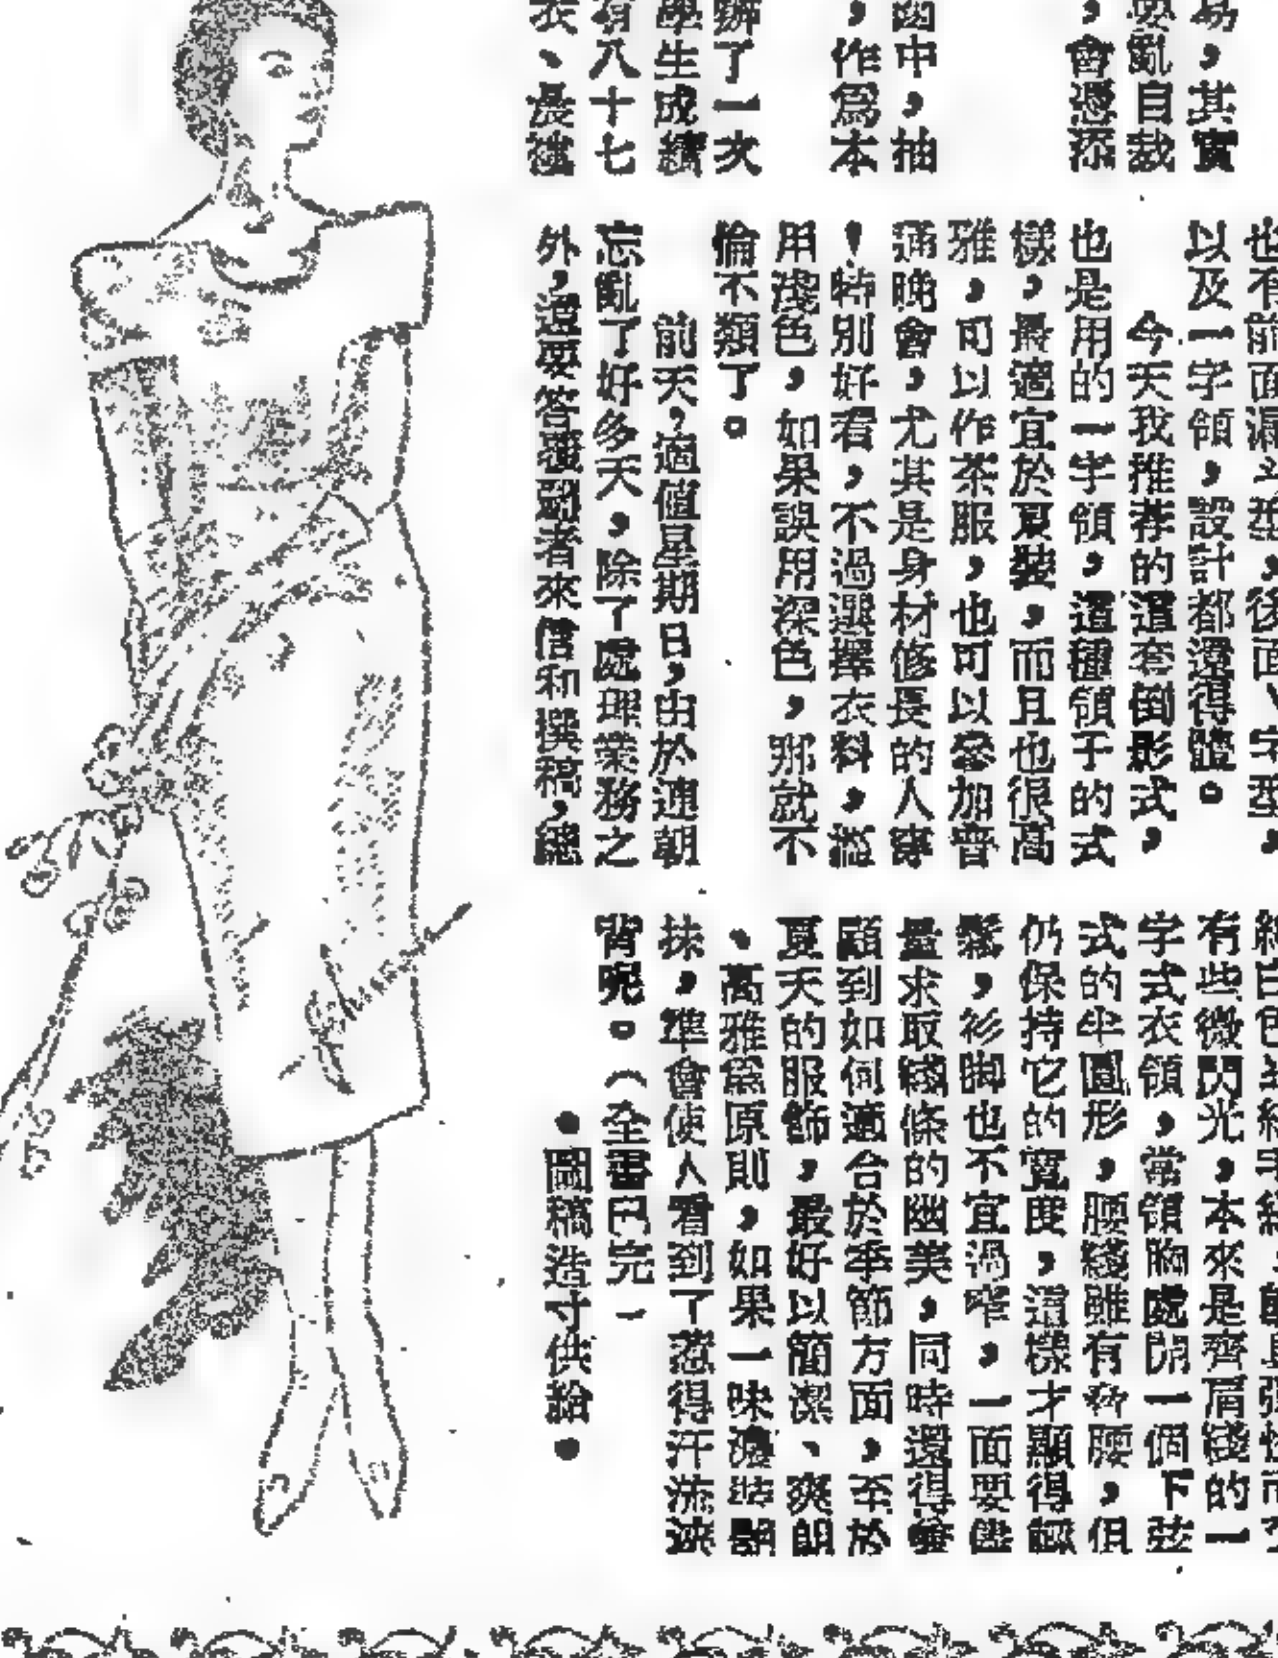 易，其實
要亂自裁
，會憑添
函中，抽
，作為本
辦了一次
學生成績
有八十七
衣、晨褸
也有前面漏斗型，後面V字型，
以及一字領，設計都還得體。
今天我推荐的這套倒影式，
也是用的一字領，這種領子的式
樣，最適宜於夏裝，而且也很高
雅，可以作茶服，也可以參加普
通晚會，尤其是身材修長的人穿
，特別好看，不過選擇衣料，
用淺色，如果誤用深色，那就不
倫不類了。
前天，適值星期日，由於連朝
忘亂了好多天，除了處理業務之
外，還要答覆讀者來信和撰稿，總
有些微閃光，本來是齊肩綫的一
字式衣領，當領胸處開一個下弦
式的半圓形，腰綫雖有脊腰，但
仍保持它的寬度，這樣才顯得飄
，衫脚也不宜過窄，一面要儘
量求取綫條的幽美，同時還得兼
顧到如何適合於季節方面，至於
夏天的服飾，最好以簡潔、爽朗
、高雅為原則，如果一味濃裝豔
抹，準會使人看到了惹得汗流浹
背呢。（全書已完）
●圖稿造寸供給●